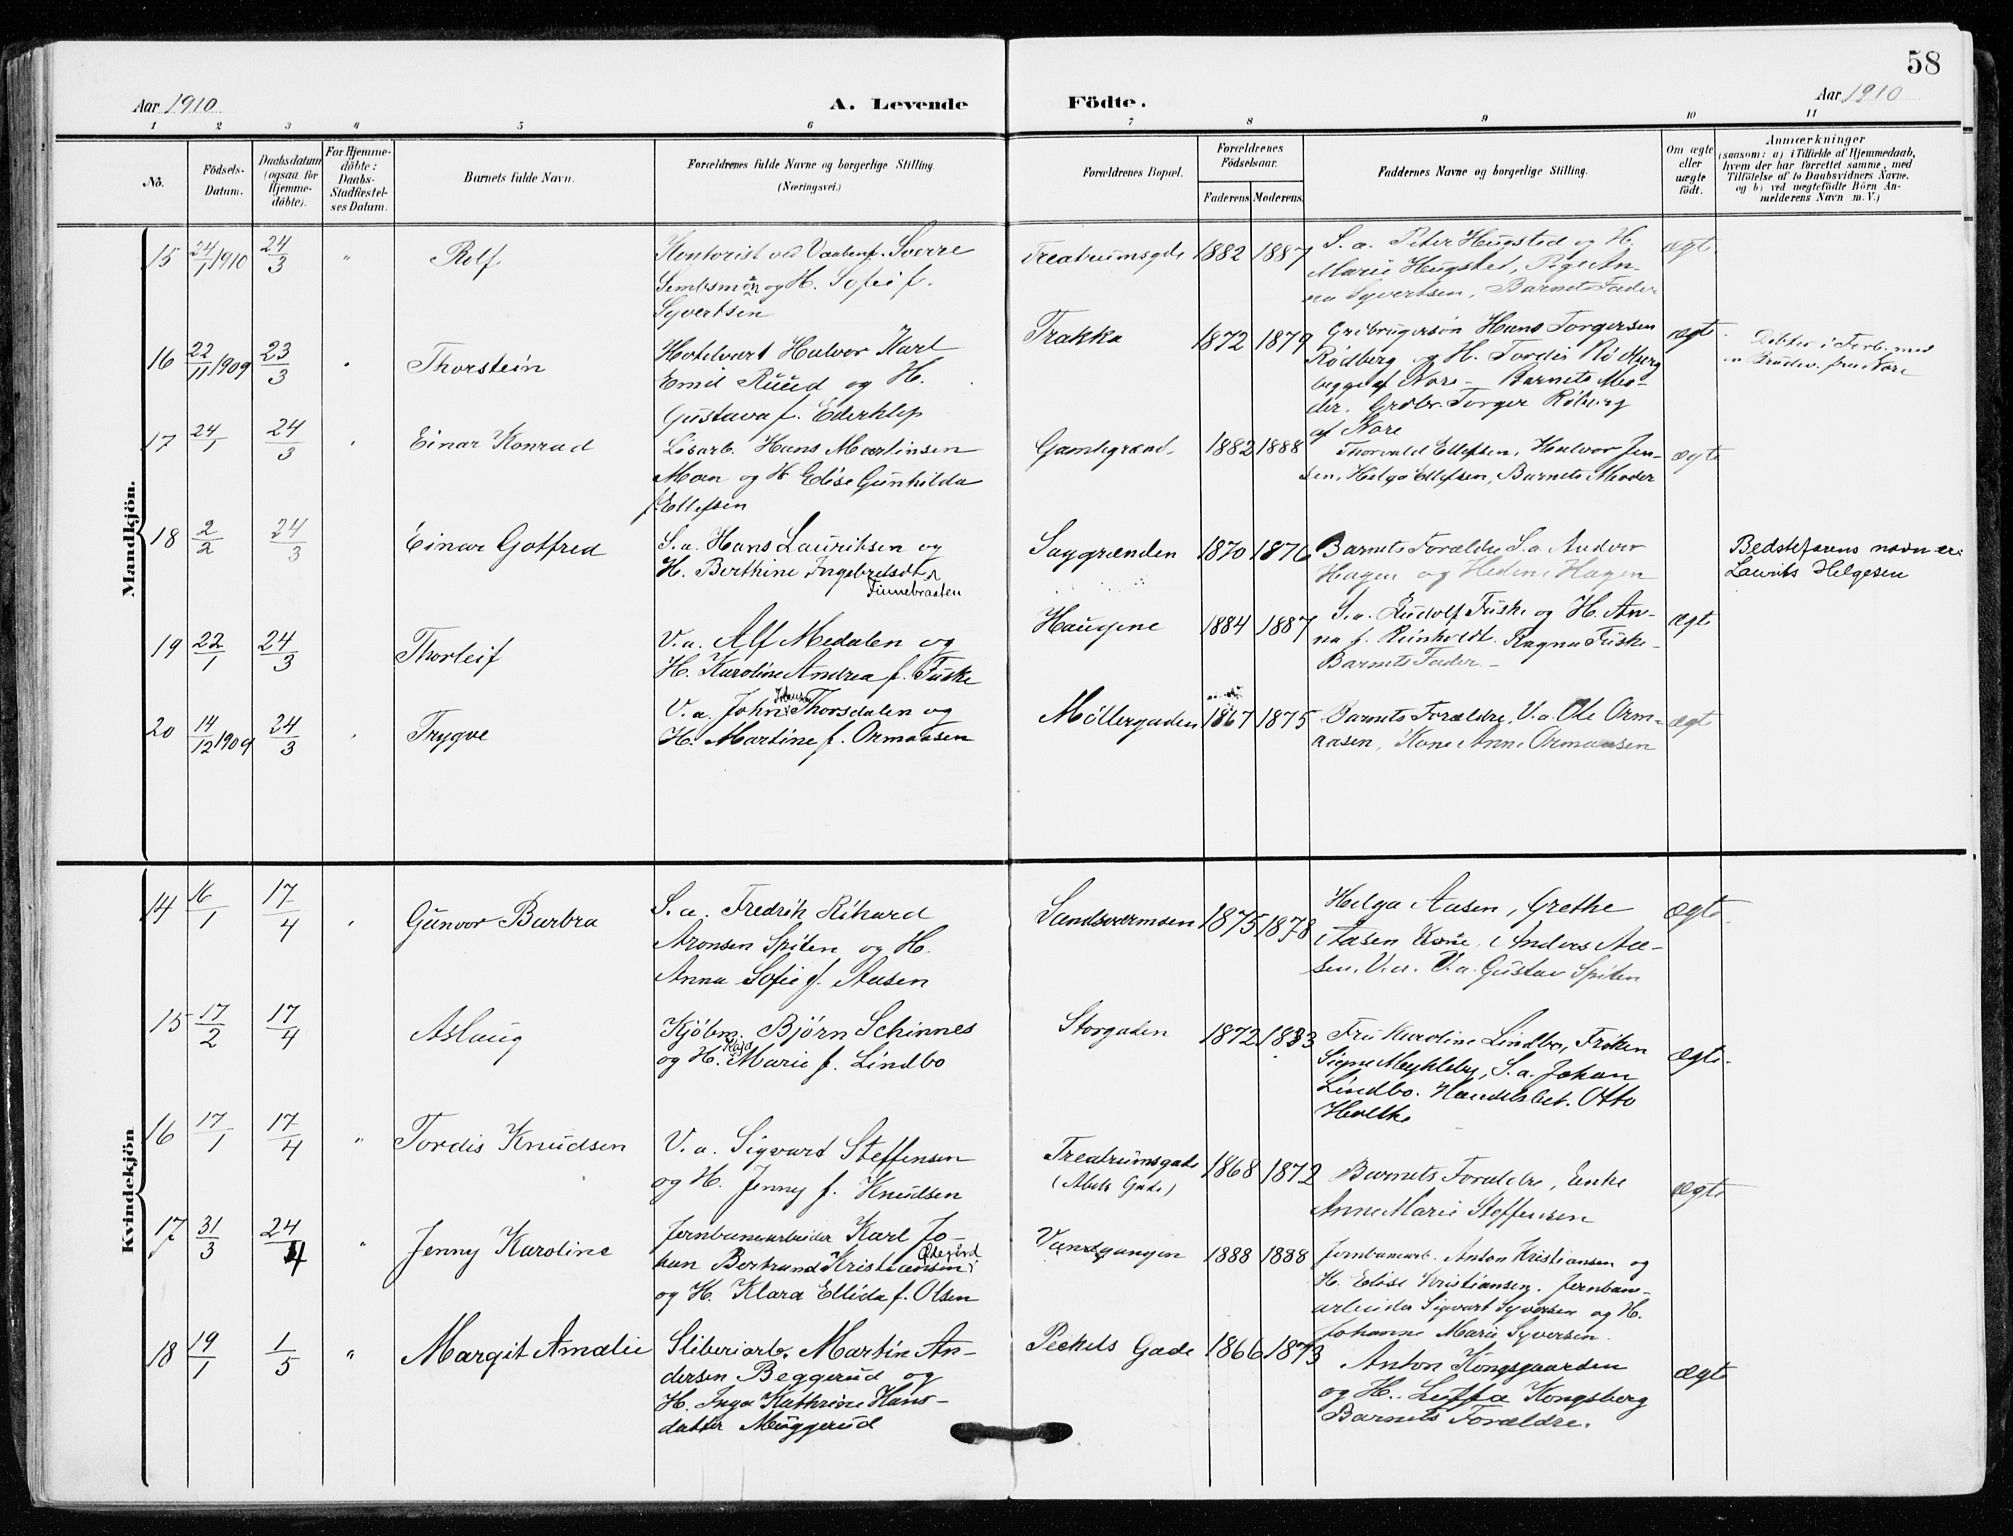 58
Aar 1910
A. Levende
Födte.
Aar 1910
1 2 3 4 5 6 7 8 9 10 11
No.
Födsels-
Datum.
Daabsdatum
(ogsaa for
Hjemme-
döbte).
For Hjemme-
döbte:
Daabs-
Stadfæstel-
ses Datum.
Barnets fulde Navn.
Forældrenes fulde Navne og borgerlige Stilling.
(Næringsvei.)
Forældrenes Bopæl.
Forældrenes
Födselsaar.
Faderens Moderens.
Faddernes Navne og borgerlige Stilling.
Om ægte
eller
uægte
födt.
Anmærkninger
(saasom: a) i Tilfælde af Hjemmedaab,
hvem der har forrettet samme, med
Tilföielse af to Daabsvidners Navne,
og b) ved uegtefödte Börn An-
melderens Navn m. V.)
Mandkjön.
15 24/1 1910 24/3 " Rolf
Kontorist ved Vaabenf. Sverre
Sembsmoen og H. Sofie f.
Syvertsen
Treatrumsgade 1882 1887
S. a. Peter Hugsted og H.
Marie Hugsted, Pige An-
na Syvertsen, Barnets Fader
ægte
16 22/11 1909 23/3 " Thorstein
Hotelvært Halvor Karl
Emil Ruud og H.
Gustava f. Ederklep
Trakka 1872 1879
Grdbrugersøn Hans Torgersen
Rødberg og H. Tordis Rødberg
begge af Nore – Barnets Mo-
der. Grdbr. Torger Röberg
af Nore
ægte
17 24/1 24/3 " Einar Konrad
Lösarb. Hans Martinsen
Moen og H. Elise Gunhilda
f. Ellefsen
Gamlegrænd 1882 1888
Thorvald Ellefsen, Halvor Jen-
sen, Helga Ellefsen, Barnets Moder
ægte
18 2/2 24/3 Einar Gotfred
S. a. Hans Lauritsen og
H. Berthine Ingebretsdt.
Finnebraaten
Saggrænden 1870 1876
Barnets Forældre S. a. Anders
Hagen og Hedine Hagen
Bedstefarens navn er:
Laurits Helgesen
19 22/1 24/3 Thorleif
V. a. Alf Medalen og
H. Karoline Andrea f. Fuske
Haugene 1884 1887
S. a. Rudolf Fuske og H. An-
na f. Reinholdt. Ragna Fuske
Barnets Fader –
ægte
20 14/12 1909 24/3 " Trygve
V. a. John Thorsdalen og
H. Martine f. Ormaasen
Möllergaden 1867 1875
Barnets Forældre, V. a. Ole Orm-
aasen, Kone Anne Ormaasen
ægte
Kvindekjön
14 16/1 17/4 " Gunvor Barbra
S. a. Fredrik Rikard
Aronsen Spiten og H.
Anna Sofie f. Aasen
Sandsværmoen 1875 1878
Helga Aasen, Grethe
Aasen Kone, Anders Aa-
sen. V. a. V. a. Gustav Spiten
ægte
15 17/2 17/4 Aslaug
Kjöbm. Björn Schinnes
og H. Kaja Marie f. Lindbo
Storgaden 1872 1883
Fru Karoline Lindbo, Fröken
Signe Myhleby, S. a. Johan
Lindbo. Handelsbet. Otto
Holthe
ægte
16 17/1 17/4 " Tordis Knudsen
V. a. Sigvart Steffensen
og H. Jenny f. Knudsen
Treatrumsgade
(Abels Gade)
1868 1872
Barnets Forældre, Enke
Anne Marie Steffensen
ægte
17 31/3 24/4 " Jenny Karoline
Jernbanearbeider Karl Jo-
han Bertrand Kristiansen Ødegård
og H. Klara Ellida f. Olsen
Vandgangen 1888 1888
Jernbanearb. Anton Kristiansen og
H. Elise Kristiansen, Jernbane-
arbeider Sigvart Syversen og H.
Johanne Marie Syversen.
18 19/1 1/5 " Margit Amalie
Sliberiarb. Martin An-
dersen Beggerud og
H. Inga Kathrine Hans-
datter Muggerud
Peckels Gade 1866 1873
Anton Kongsgaarden
og H. Luffa Kongsberg
Barnets Forældre.
ægte